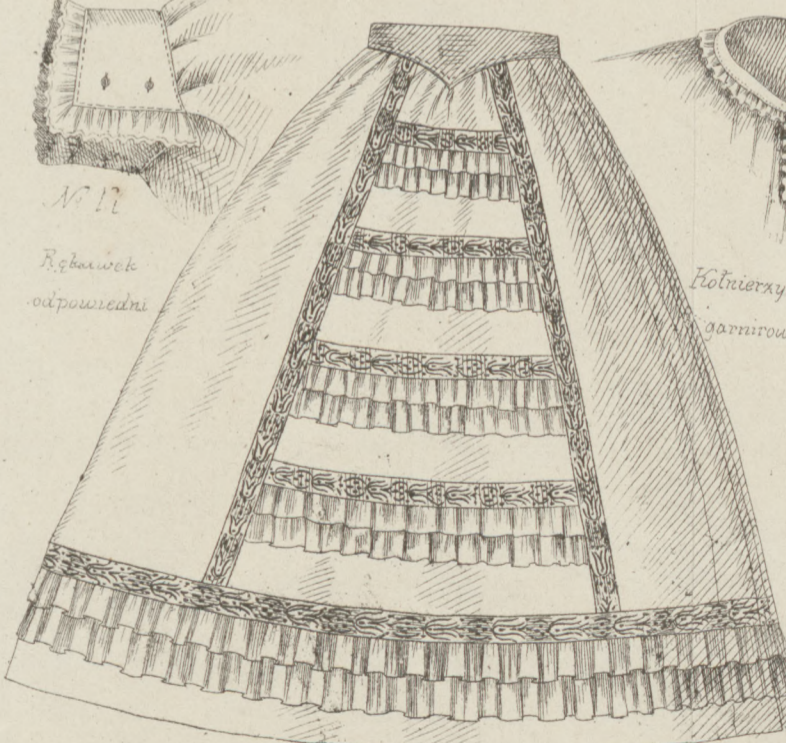 Rękawek
odpowiedni
Kołnierzy
garnirow